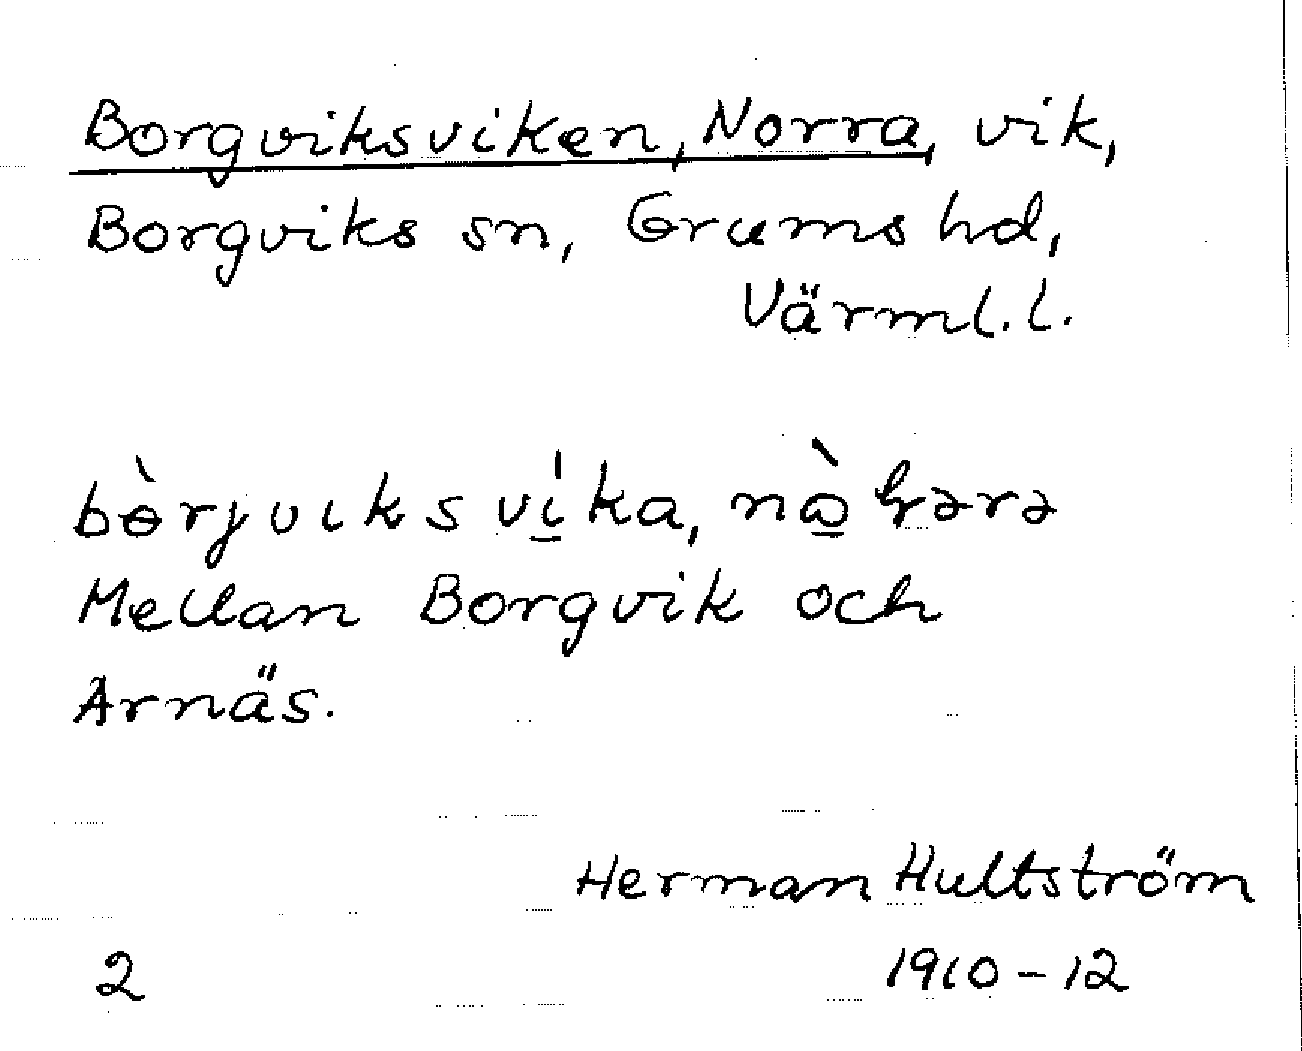 Borgviksviken, Norra, vik,
Borgviks sn, Grums hd,
Värml. l.
bɵ̀rjvıksví̱ka,
Mellan Borgvik och
Arnäs.
Herman Hultström
2 1910-12